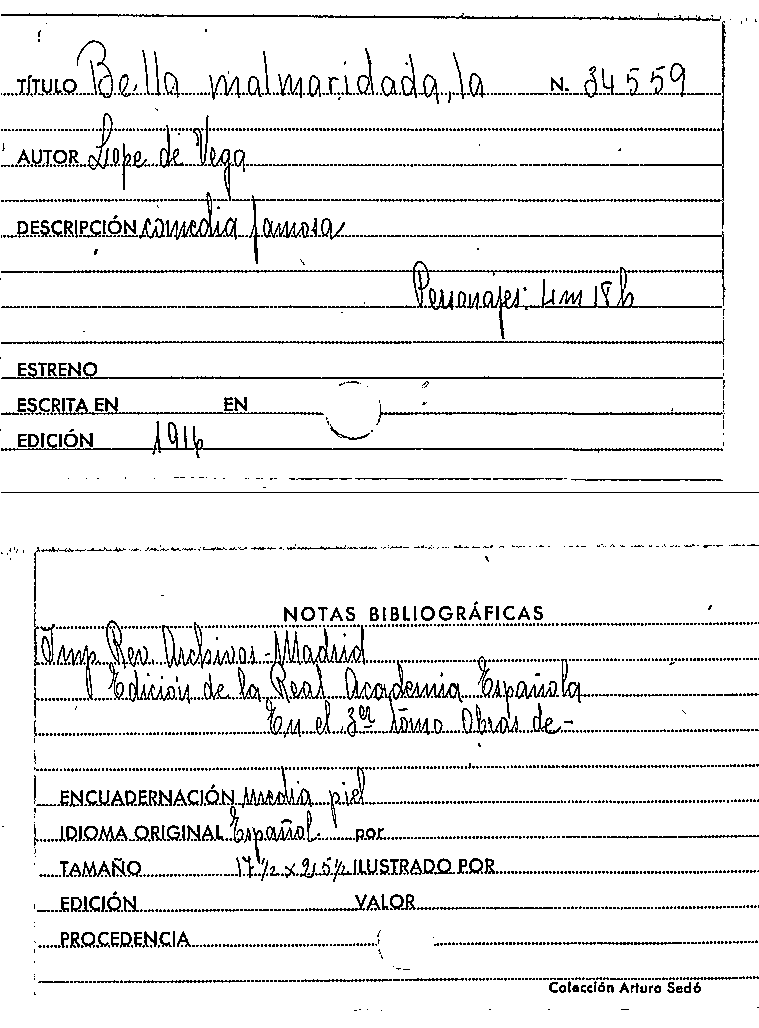 TÍTULO Bella malmaridada, la N. 34559
AUTOR Lope de Vega
DESCRIPCIÓN comedia famosa
Personajes: 4m 18h
ESTRENO
ESCRITA EN EN
EDICIÓN 1916
NOTAS BIBLIOGRÁFICAS
Imp. Rev. Archivos - Madrid
Edición de la Real Academia Española
En el 3er tomo Obras de -
ENCUADERNACIÓN media piel
IDIOMA ORIGINAL Español. por
TAMAÑO 17 1/2 x 25 1/2 ILUSTRADO POR
EDICIÓN VALOR
PROCEDENCIA
Colección Arturo Sedó